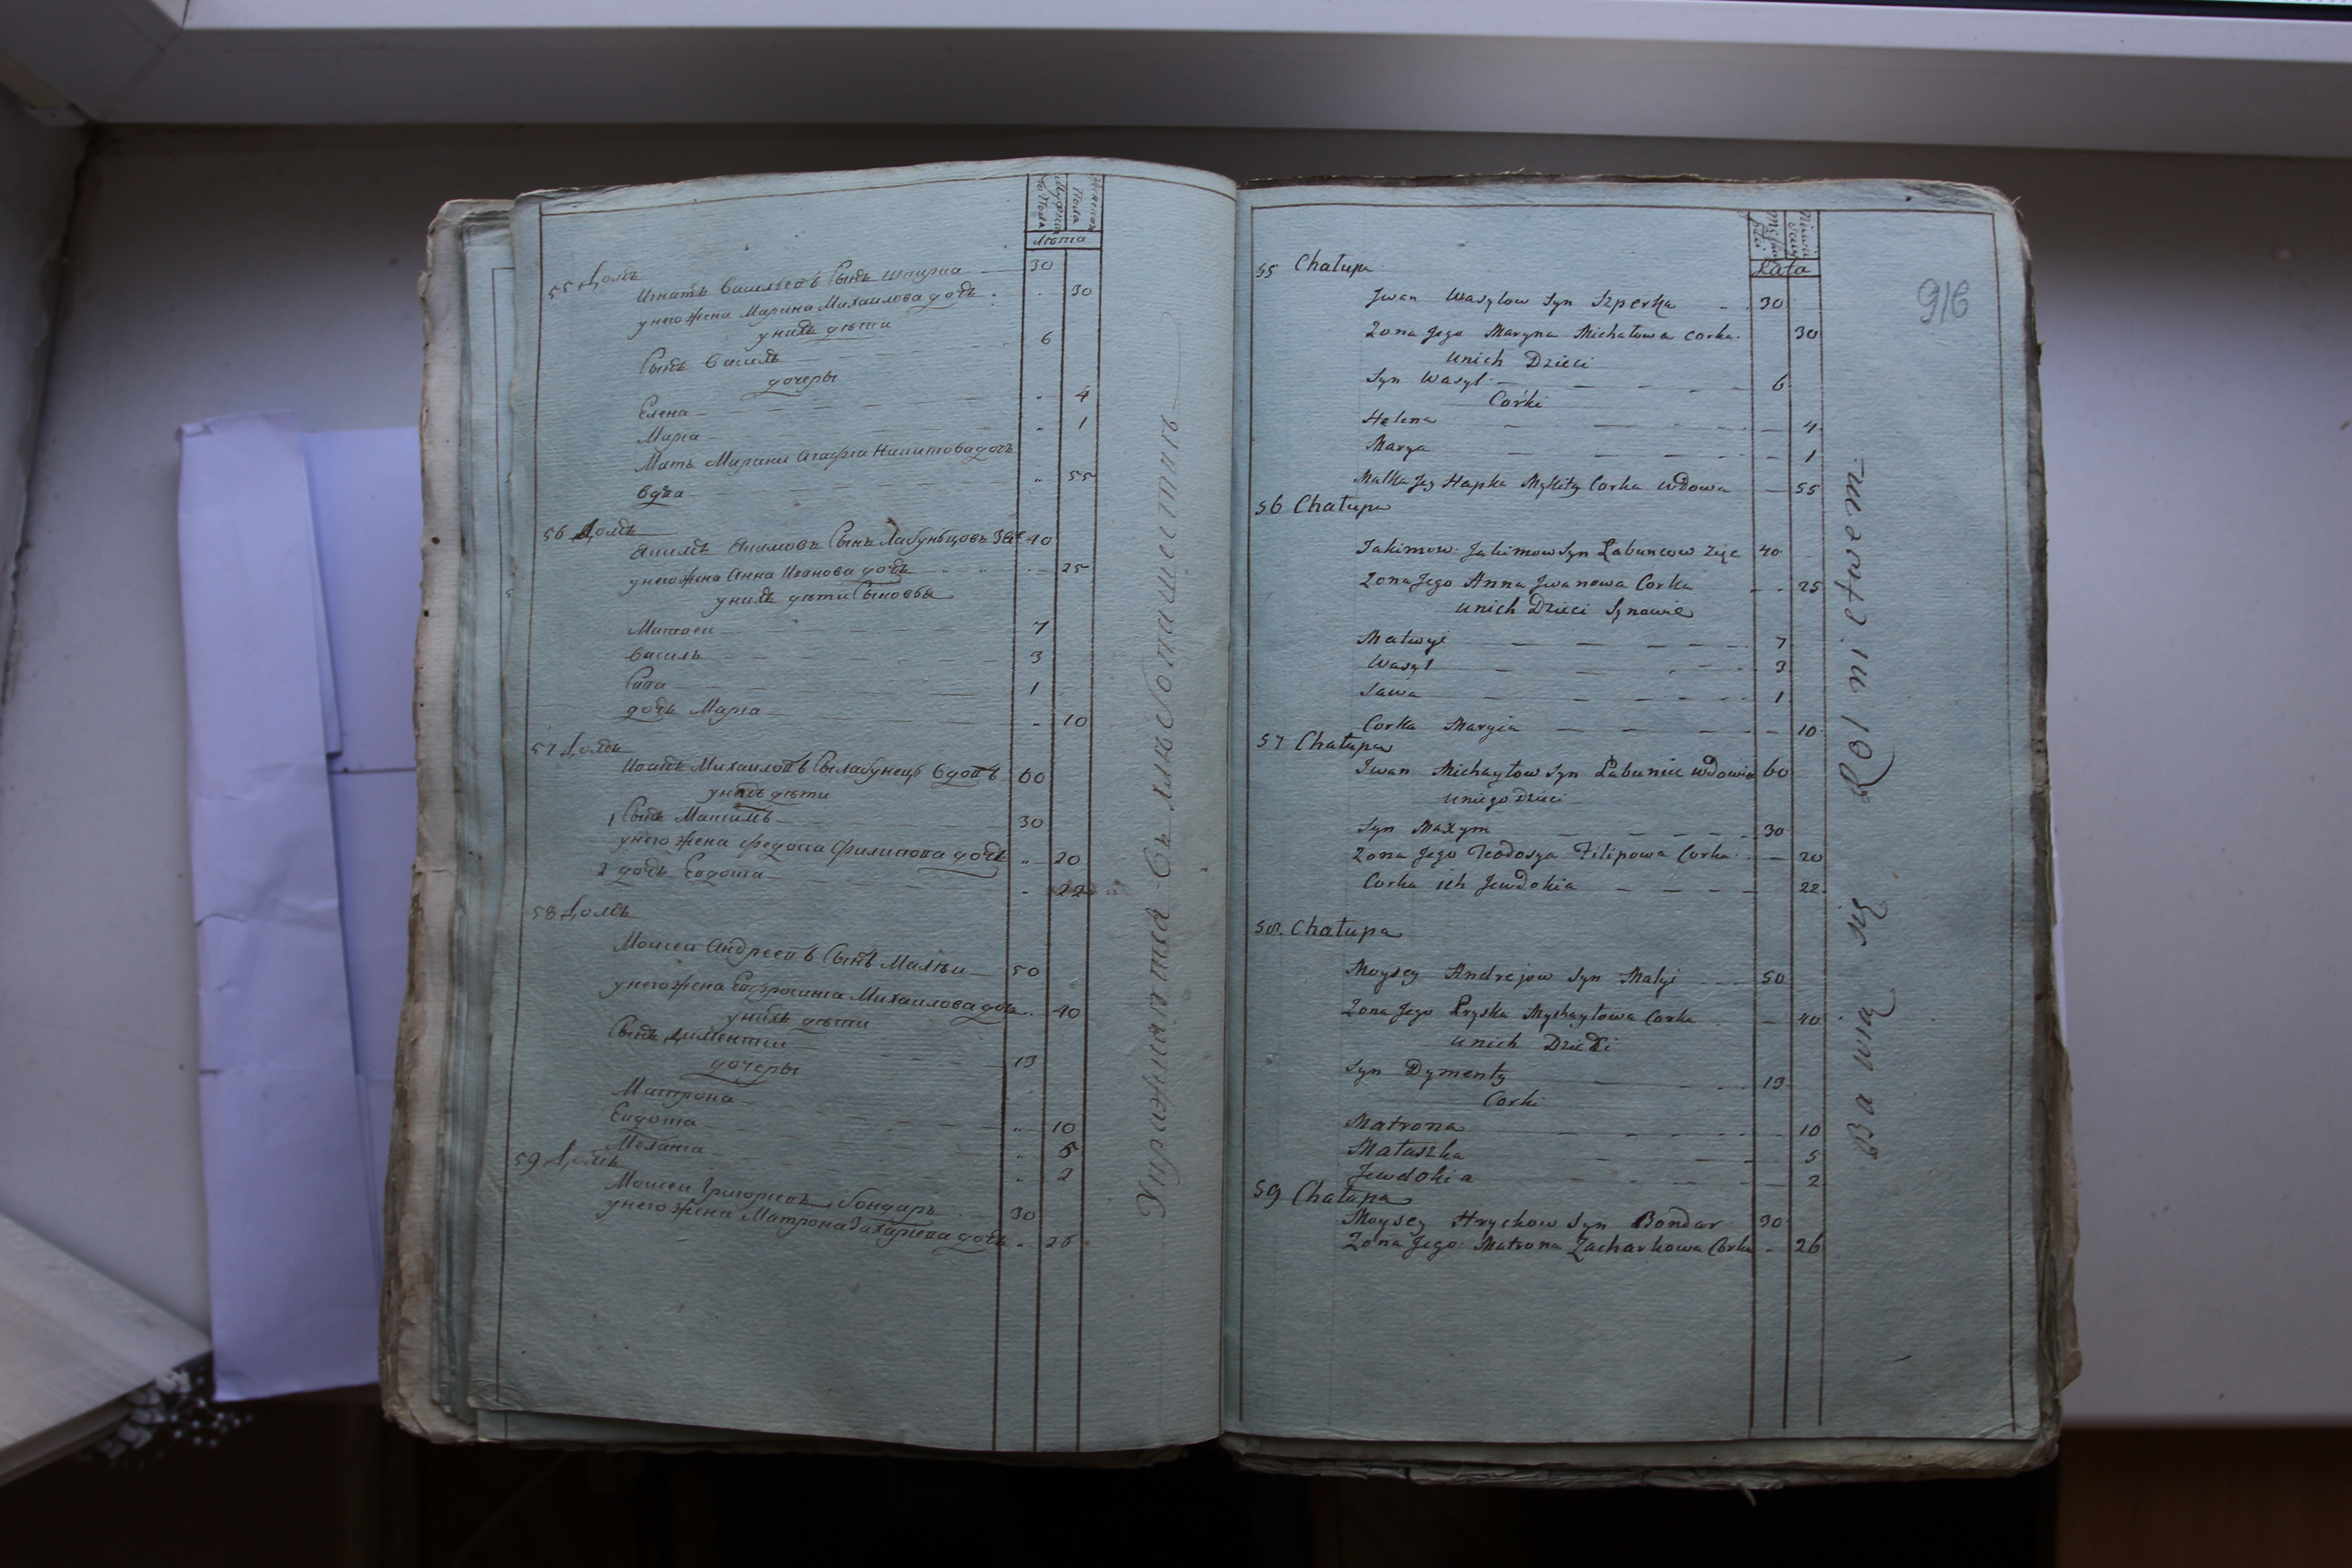 Мужеска Пола
Женска Пола
Лѣта
55 Домъ
Игнатъ Васильевъ Сынъ Шпирка 30
у него жена Марина Михаилова дочь 30
у нихъ дѣти
Сынъ Василь 6
дочеры
Елена 4
Мария 1
Мать Марини Агафия Никитова дочь
вдва 55
56 Домъ
Акимъ Акимовъ Сынъ Лабунъцовъ зя 40
у него жена Анна Иванова дочь 25
у нихъ дѣти Сыновья
Матвеи 7
Василь 3
Сава 1
дочь Мария 10
57 Домъ
Иванъ Михаиловъ Сы Лабунецъ вдовъ 60
у нихъ дѣти
1 Сынъ Максимъ 30
у него жена Федосия Филипова дочь 20
2 дочь Евдокия 22
58 Домъ
Моисеи Андреевъ Сынъ Малыи 50
у него жена Евфросиния Михаилова доч 40
у нихъ дѣти
Сынъ Диментии 19
дочеры
Матрона
Евдокия 10
Мелания 5
59 Домъ 2
Моисеи Григориевъ Бондаръ 30
у него жена Матрона Захариева дочь 26
Упражняютца въ хлѣбопашествѣ
916
Lata
55 Chałupa
Jwan Wasylow Syn Szperka 30
Zona Jego Maryna Michałowa Corka 30
unich Dzieci
Syn Wasyl 6
Corki
Helena 4
Marya 1
Matka Jey Hapka Mykity Corka wdowa 55
56 Chałupa
Jakimow Jakimow Syn Łabuncow Zięc 40
Zona Jego Anna Jwanowa Corka 25
unich Dzieci Synowie
Matwyi 7
Wasyl 3
Sawa 1
Corka Maryia 10
57 Chałupa
Jwan Michayłow Syn Łabuniec wdowiec 60
uniego Dzieci
Syn Maxym 30
Zona Jego Teodosya Filipowa Corka 20
Corka ich Jewdokia 22
58. Chałupa
Moysey Andrejow Syn Małyi 50
Zona Jego Pryska Mychayłowa Corka 40
unich Dzieci
Syn Dymenty 19
Corki
Matrona 10
Małaszka 5
Jewdokia 2
59 Chałupa
Moysey Hrychow Syn Bondar 30
Zona Jego Matrona Zacharkowa Corka 26
Bawią się Rolnictwem